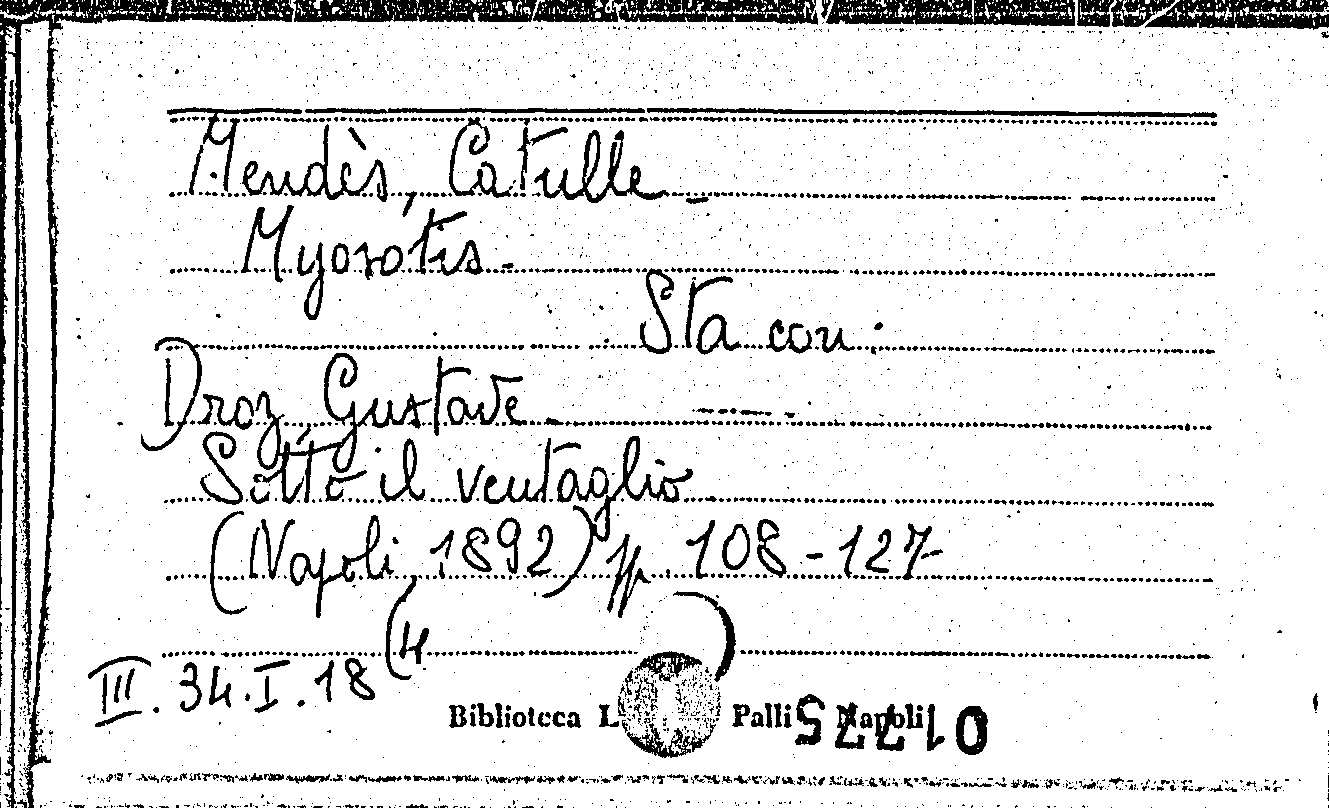 Mendès, Catulle -
Myosotis.
Sta con:
Droz, Gustave -
Sotto il ventaglio
(Napoli, 1892) pp. 108-127
III. 34. I. 18 (4
Biblioteca L Palli Napoli
01775